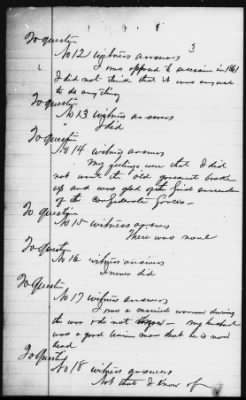 3
To question
No 12 witness answers
I was opposed to secession in 1861
I did not think that it was
to do any thing
To question
No 13 witness answers
I did
To question
No 14 witness answers
My feelings were that I did
not want the old government broke
up and was glad of the final surrender
of the Confederate forces –
To question
No 15 witness answers
There was none
To question
No 16 witness answers
I never did
To Question
No 17 witness answers
I was a married woman during
the war & do not – my husband
was a good Union man but he is now
dead
To Question
No 18 witness answers
Not that I know of